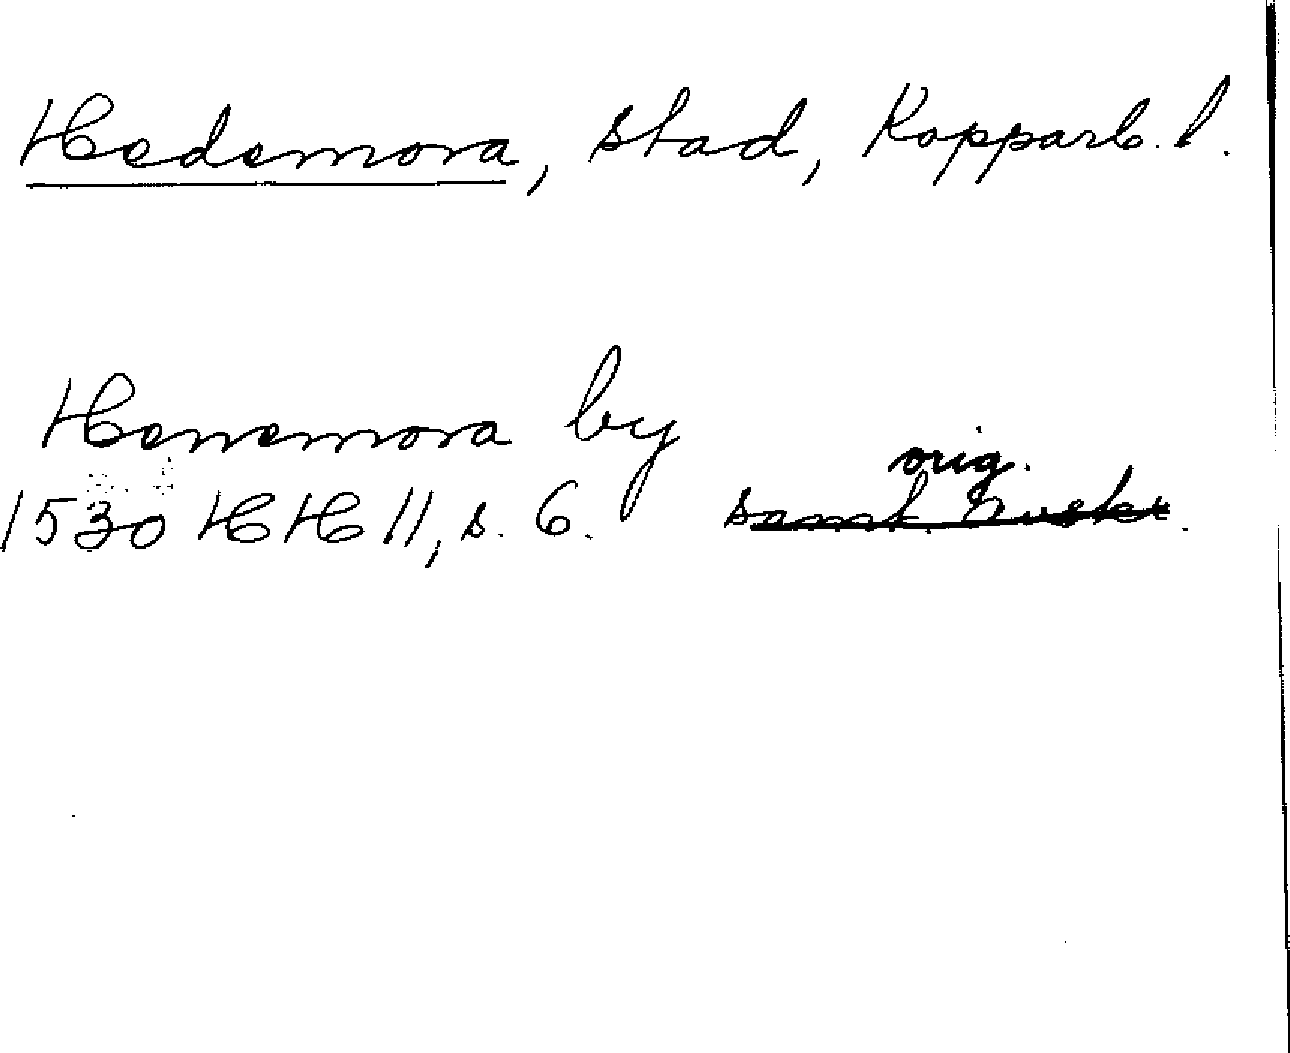 Hedemora, stad, Kopparb. l.
Henemora by
orig.
1530 HH 11, s. 6. samt. avskr.